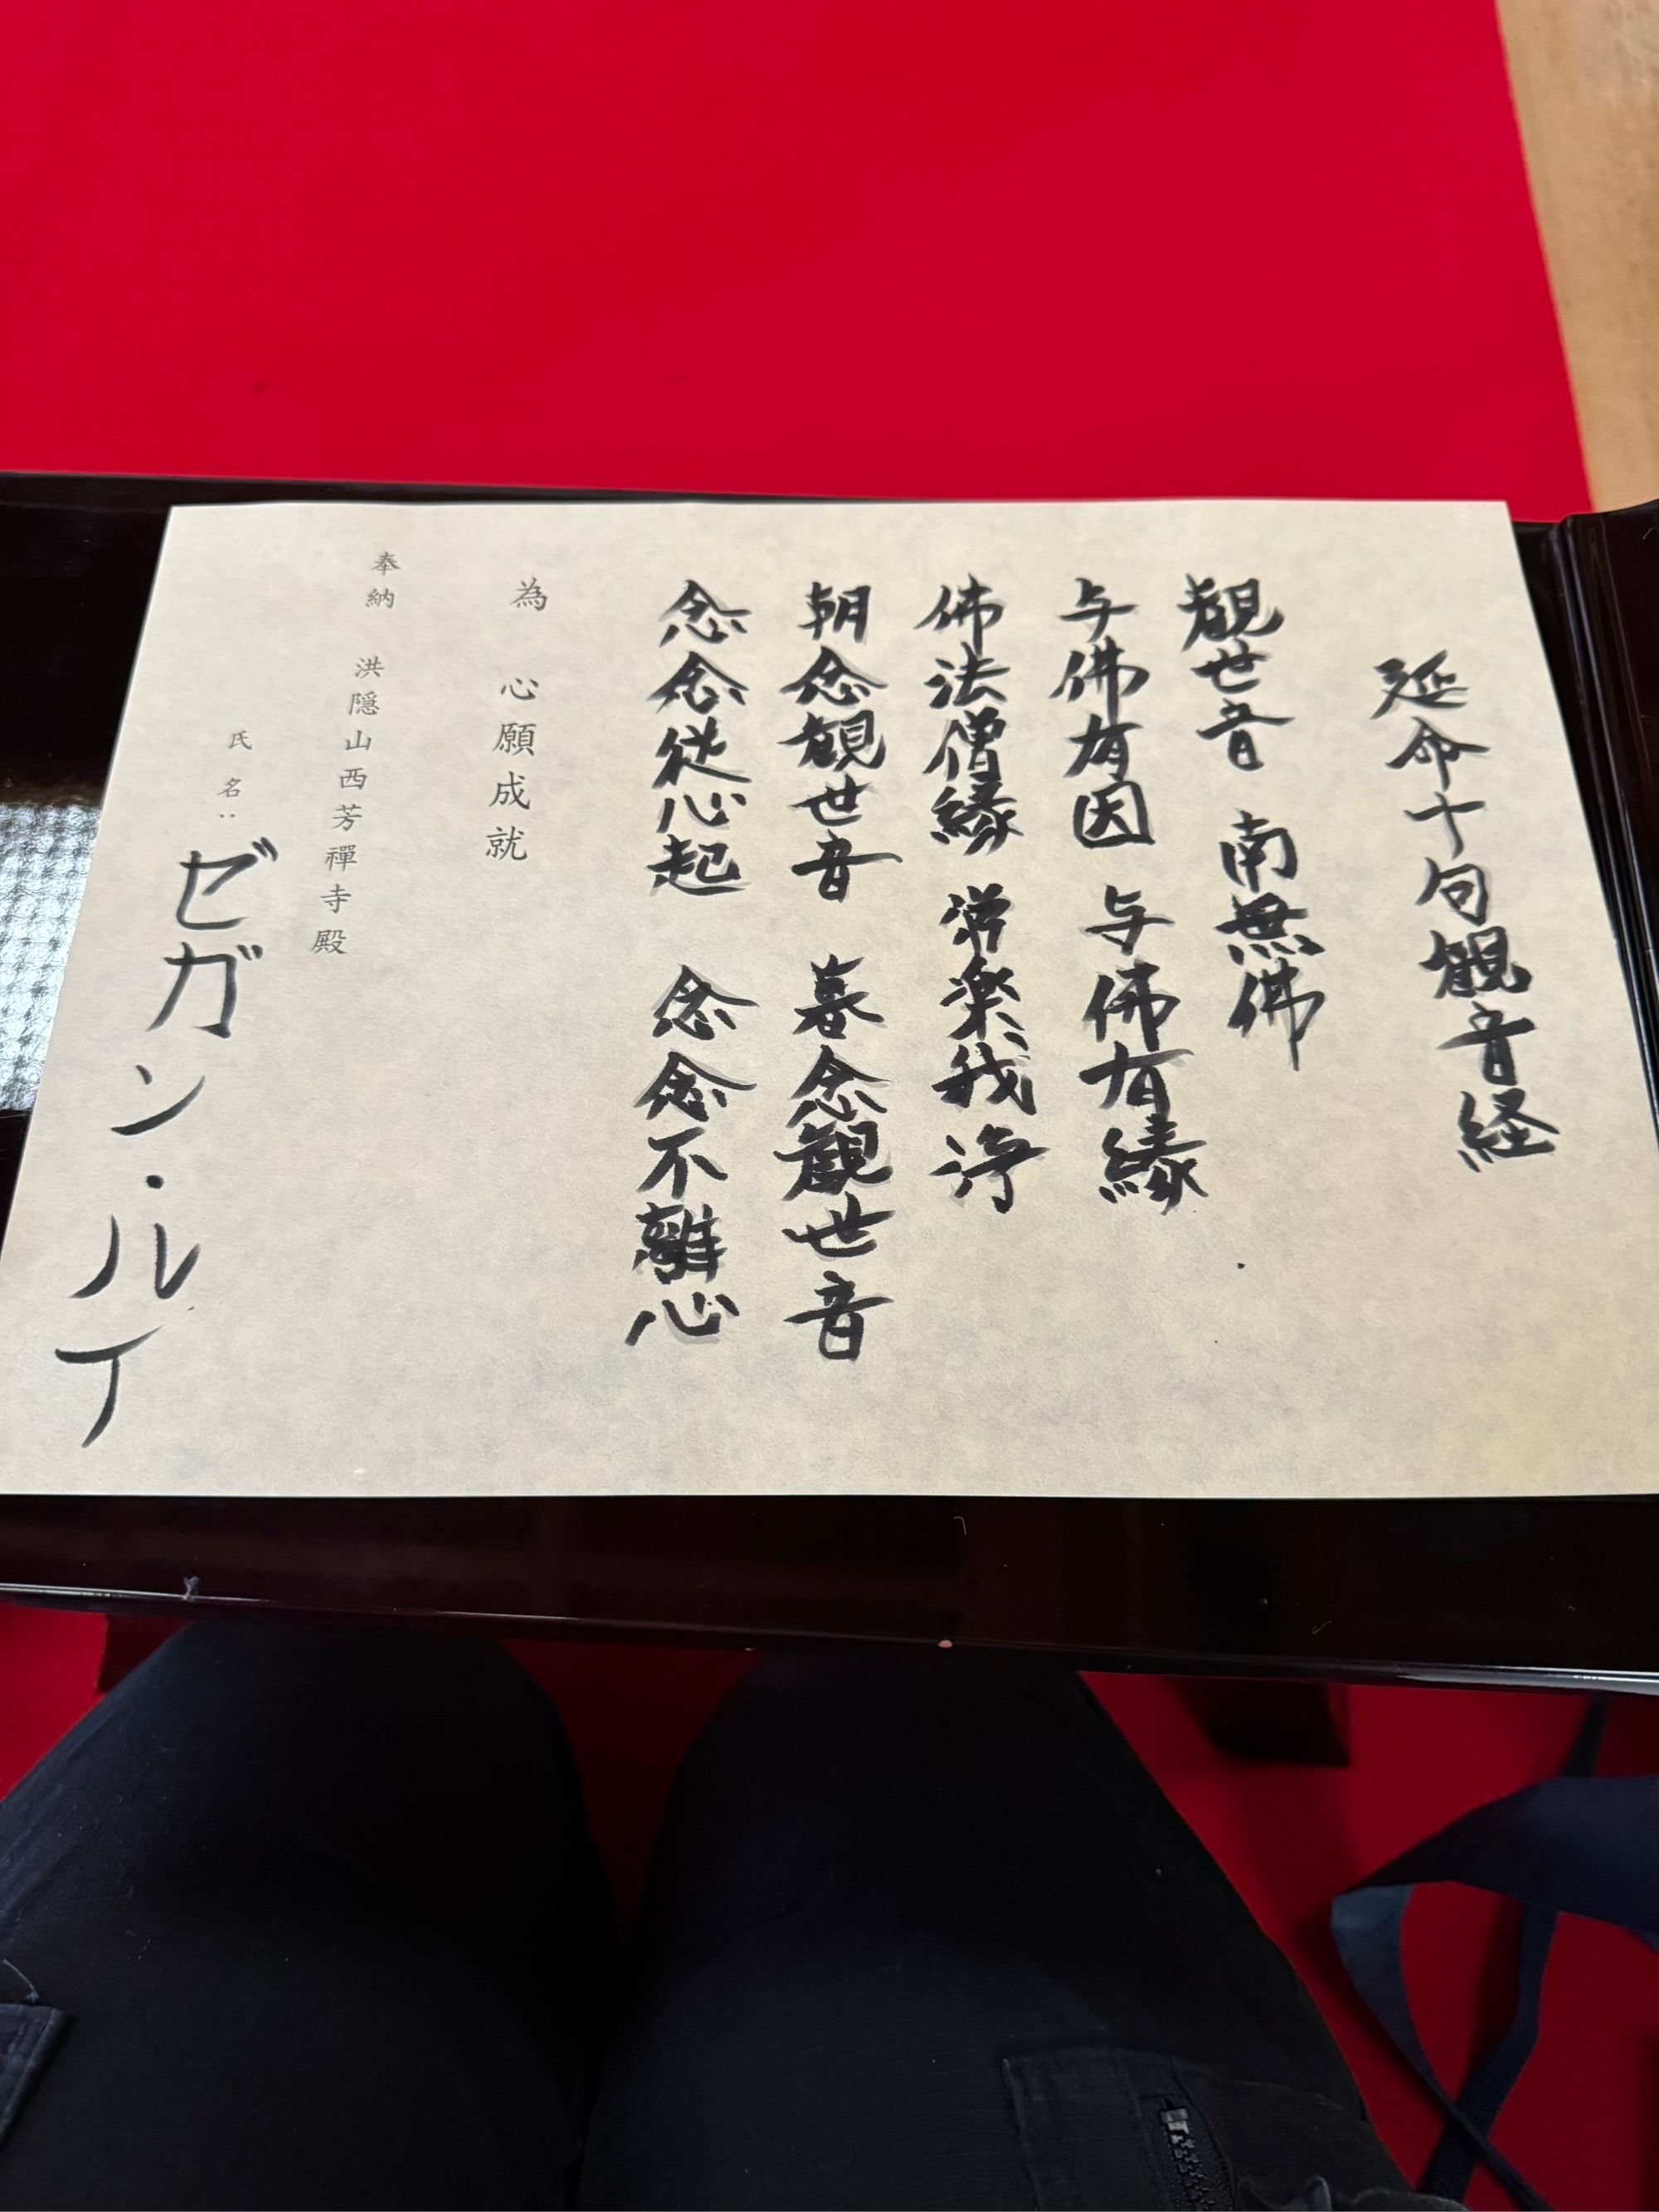 延命十句観音経
観世音 南無佛
与佛有因 与佛有縁
佛法僧縁 常楽我浄
朝念観世音 暮念観世音
念念従心起 念念不離心
為 心願成就
奉納 洪隠山西芳禪寺殿
氏名：ゼガン・ルイ